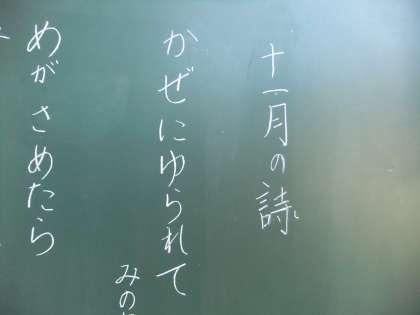 十一月の詩
かぜにゆられて
みの
めがさめたら